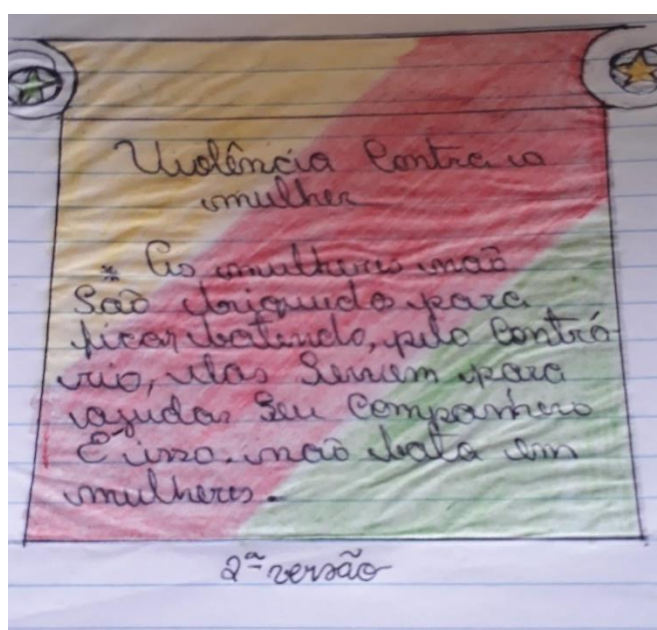 Violência Contra a
mulher
* As mulheres naõ
Saõ briquedo para
ficar batendo, pelo Contrá-
rio, elas Servem para
ajudar Seu Companhero
É isso. naõ bata em
mulheres.
2ª versão